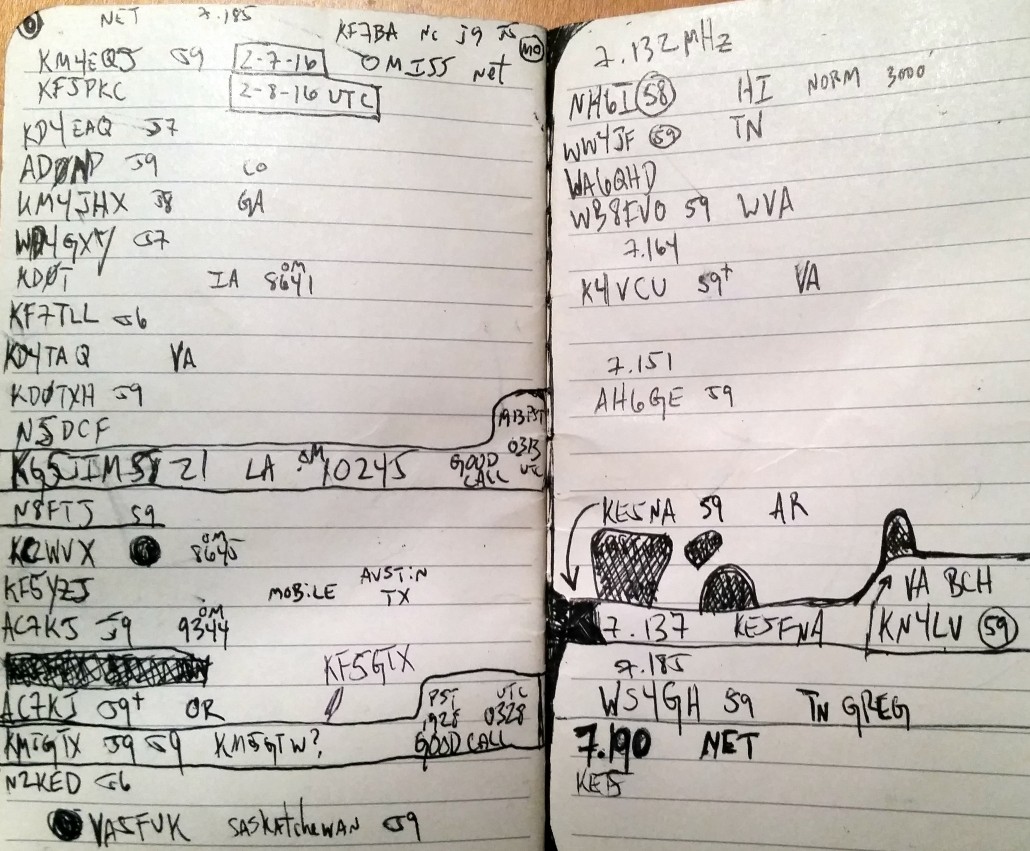 NET 7.185
KF7BA NC 59 75
MO
KM4EQJ 59 2-7-16 OMISS net
KF5PKC 2-8-16 UTC
KD4EAQ 57
AD0ND 59 CO
KM4JHX 38 GA
WD4GXY 57
KD0T IA OM 8641
KF7TLL 56
KD4TAQ VA
KD0TXH 59
N5DCF
KG5JIM 51 21 LA OM 10245 GOOD CALL 1913 PST 0313 UTC
N8FTJ 59
KC2WVX OM 8645
KF5YZJ MOBILE AUSTIN TX
AC7KJ 59 OM 9344
KF5GTX
AC7KJ 59+ OR
KM5GTX 59 59 KM5GTW? PST 1928 UTC 0328 GOOD CALL
N2KED 56
VA5FUK SASKATCHEWAN 59
7.132 MHZ
NH6I 58 HI NORM 3000
WW4JF 59 TN
WA6QHD
WB8FVO 59 WVA
7.164
K4VCU 59+ VA
7.151
AH6GE 59
KE5NA 59 AR
VA BCH
7.137 KE5FNA KN4LV 59
7.185
WS4GH 59 TN GREG
7.190 NET
KE5